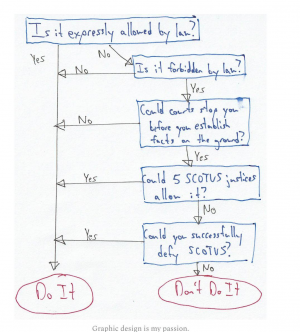 Is it expressly allowed by law?
Yes
No
No
Is it forbidden by law?
Yes
Could courts stop you
before you establish
facts on the ground?
No
Yes
Could 5 SCOTUS justices
allow it?
Yes
No
Could you successfully
defy SCOTUS?
Yes
No
Do It
Don't Do It
Graphic design is my passion.